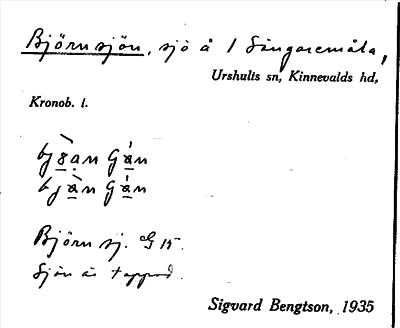 Björnsjön, sjö å 1 Singaremåla,
Urshults sn, Kinnevalds hd,
Kronob. l.
Björn sj. G 15.
Sjön är tappad.
Sigvard Bengtson, 1935